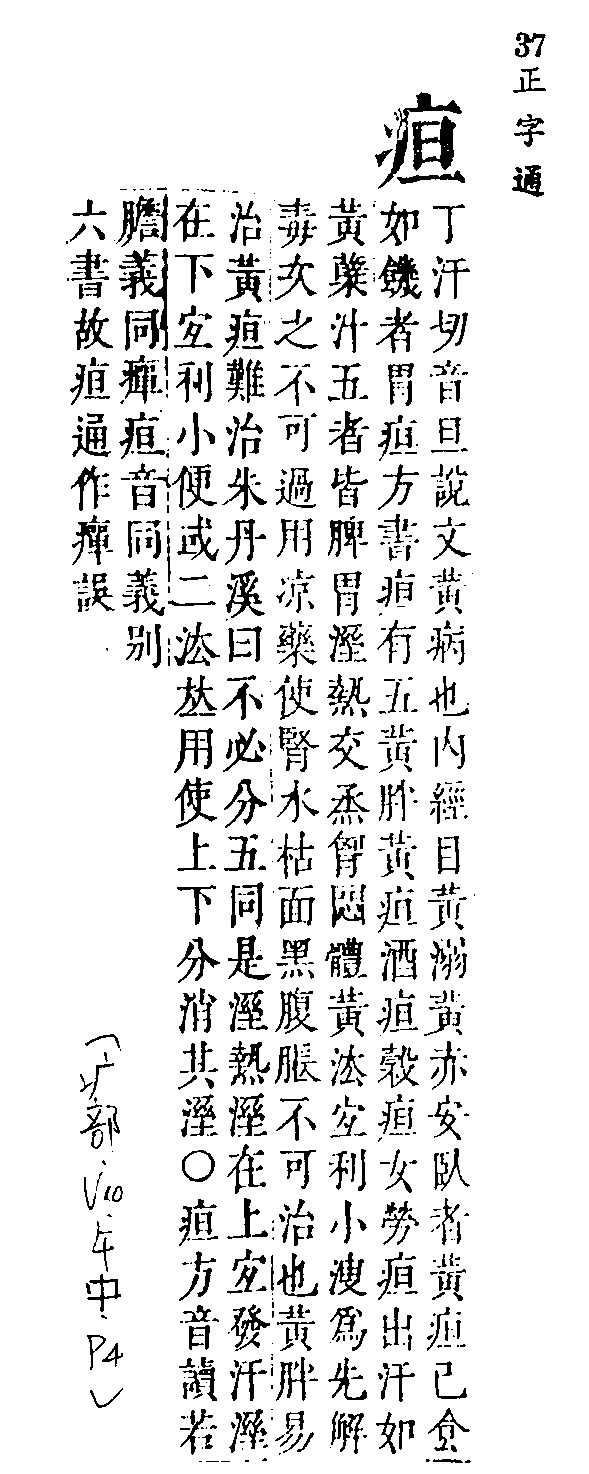 37正字通
疸
丁汗切音旦說文黃病也內經目黃溺黃赤安臥者黃疸已食
如饑者胃疸方書疸有五黃胖黃疸酒疸穀疸女勞疸出汗如
黃蘗汁五者皆脾胃溼熱交烝胷悶體黃法宐利小溲爲先解
毒次之不可過用凉藥使腎水枯面黑腹脹不可治也黃胖易
治黃疸難治朱丹溪曰不必分五同是溼熱溼在上宐發汗溼
在下宐利小便或二法𠀤用使上下分消其溼〇疸方音讀若
膽義同癉疸音同義別
六書故疸通作癉誤
(疒部.V10.午中.P4)